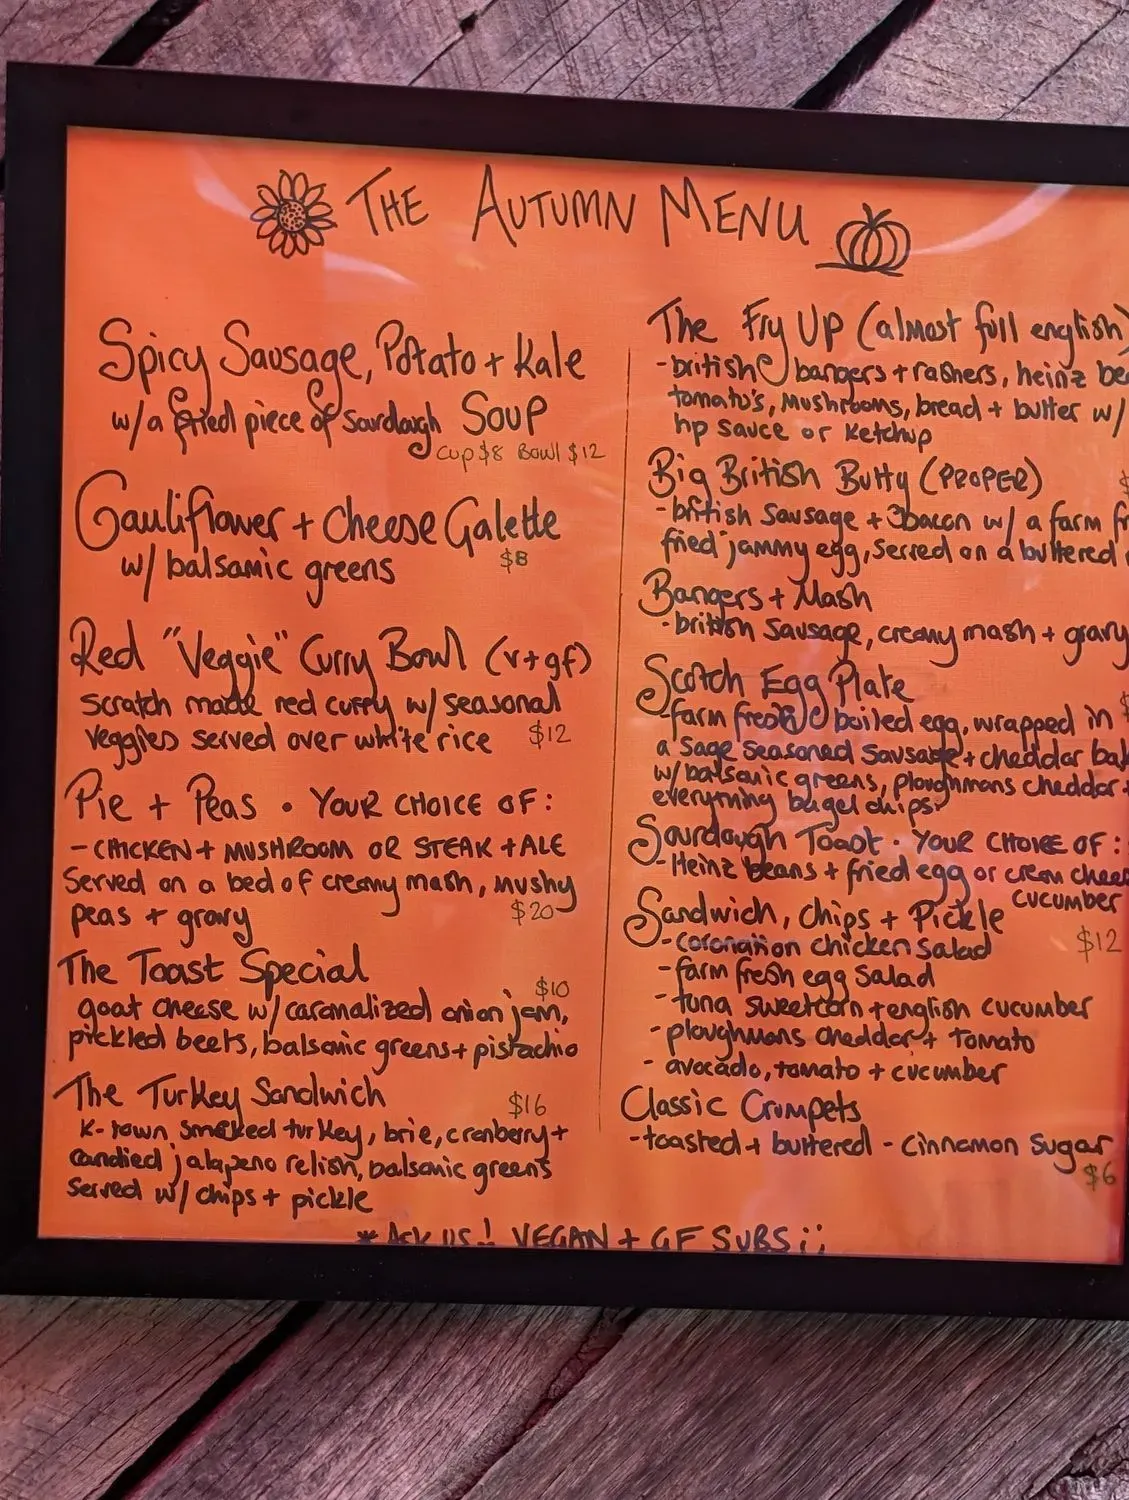 THE AUTUMN MENU
Spicy Sausage, Potato + Kale
w/a fried piece of Sourdough SOUP
Cup $8 Bowl $12
Cauliflower + Cheese Galette
w/ balsamic greens $8
Red "Veggie" Curry Bowl (v+gf)
scratch made red curry w/ seasonal
veggies served over white rice $12
Pie + Peas • YOUR CHOICE OF:
- CHICKEN + MUSHROOM OR STEAK + ALE
Served on a bed of creamy mash, mushy
peas + gravy $20
The Toast Special
$10
goat cheese w/ caramalized onion jam,
pickled beets, balsamic greens + pistachio
The Turkey Sandwich
$16
K-town smoked turkey, brie, cranberry +
candied jalapeno relish, balsamic greens
Served w/ chips + pickle
The Fry UP (almost full english)
- british bangers + rashers, heinz be
tomato's, mushrooms, bread + butter w/
hp sauce or ketchup
Big British Butty (PROPER)
- british Sausage + bacon w/ a farm fr
fried jammy egg, served on a buttered
Bangers + Mash
- british Sausage, creamy mash + gravy
Scotch Egg Plate
- farm fresh boiled egg, wrapped in
a sage seasoned sausage + cheddar ba
w/ balsamic greens, ploughmans cheddar +
everything bagel chips
Sourdough Toast • YOUR CHOICE OF:
- Heinz beans + fried egg or cream chees
cucumber
Sandwich, Chips + Pickle
- coronation chicken salad $12
- farm fresh egg salad
- tuna sweetcorn + english cucumber
- ploughmans cheddar + tomato
- avocado, tomato + cucumber
Classic Crumpets
- toasted + buttered - cinnamon sugar
$6
* Ask us! VEGAN + GF SUBS